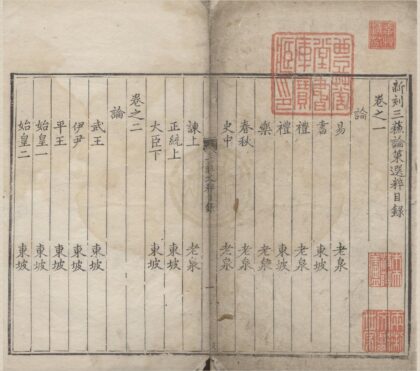 新刻三蘇論策選粹目錄
卷之一
論
易 老泉
書 東坡
禮 老泉
禮 東坡
樂 老泉
春秋 老泉
史中 老泉
諫上 老泉
正統上 東坡
大臣下 東坡
卷之二
論
武王 東坡
伊尹 東坡
平王 東坡
始皇一 東坡
始皇二 東坡